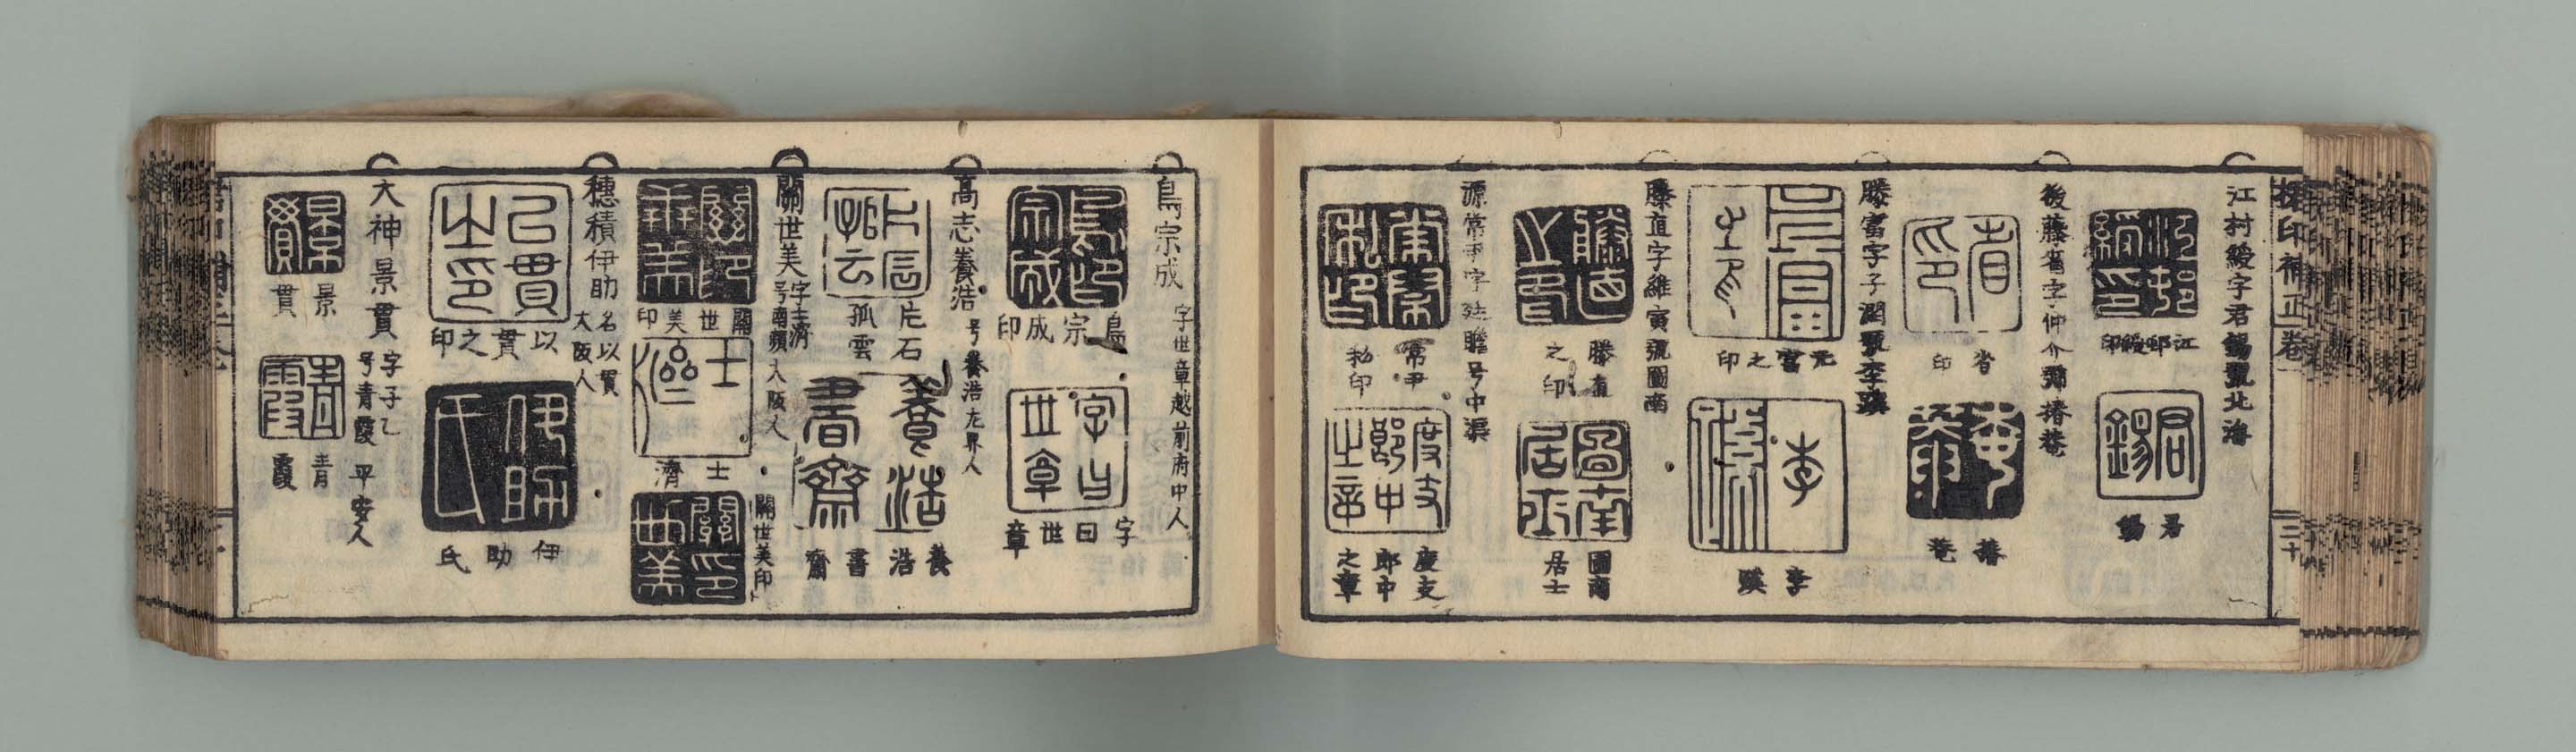 江村綬字君錫號北海
江邨綬印
君錫
後藤省字仲介號椿菴
省印
椿菴
滕富字子潤號李蹊
元富之印
李蹊
滕直字維寅號圖南
滕直之印
圖南居士
源常尹字廷瞻号中漠
常尹
印
度支郎中之章
鳥宗成 字世章越前府中人
鳥宗成印
字曰世章
高志養浩 号養浩左界人
片石孤雲
養浩書齋
關世美 字士濟号南瀕大阪人
關世美印
士濟
關世美印
穗積伊助 名以貫大阪人
以貫之印
伊助氏
大神景貫 字子乙号青霞 平安人
景貫
青霞
印補正 卷
三十